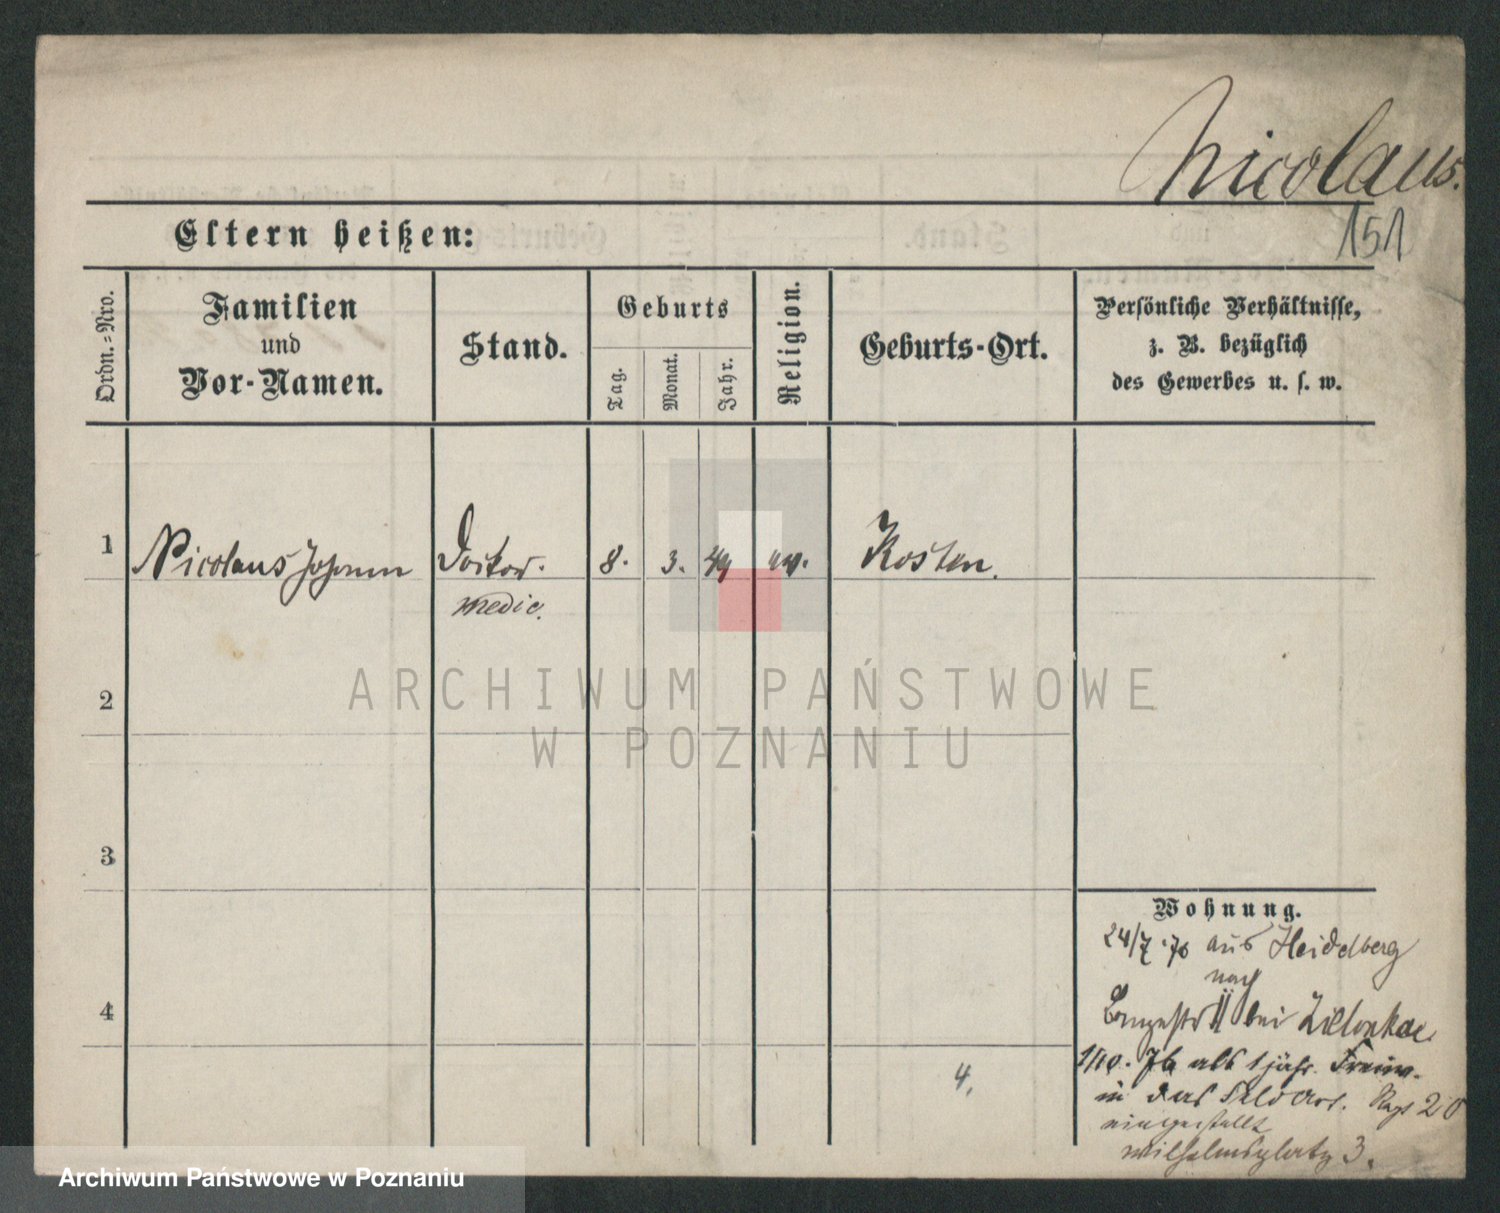 Nicolaus.
151
Eltern heißen:
Ordn.=Nro.
Familien
und
Vor-Namen.
Stand.
Geburts
Tag.
Monat.
Jahr.
Religion.
Geburts-Ort.
Persönliche Verhältnisse,
z. B. bezüglich
des Gewerbes u. s. w.
1 Nicolaus Johann Doctor. 8. 3. 49 Kosten.
medic.
2
3
4
Wohnung.
24/7. 76 aus Heidelberg
nach
bei Zielonka
1/10. 76 als 1 jähr. Freiw.
in das Feld Art. Rgt 20
eingestellt
Wilhelmsplatz 3.
4.
ARCHIWUM PAŃSTWOWE
W POZNANIU
Archiwum Państwowe w Poznaniu